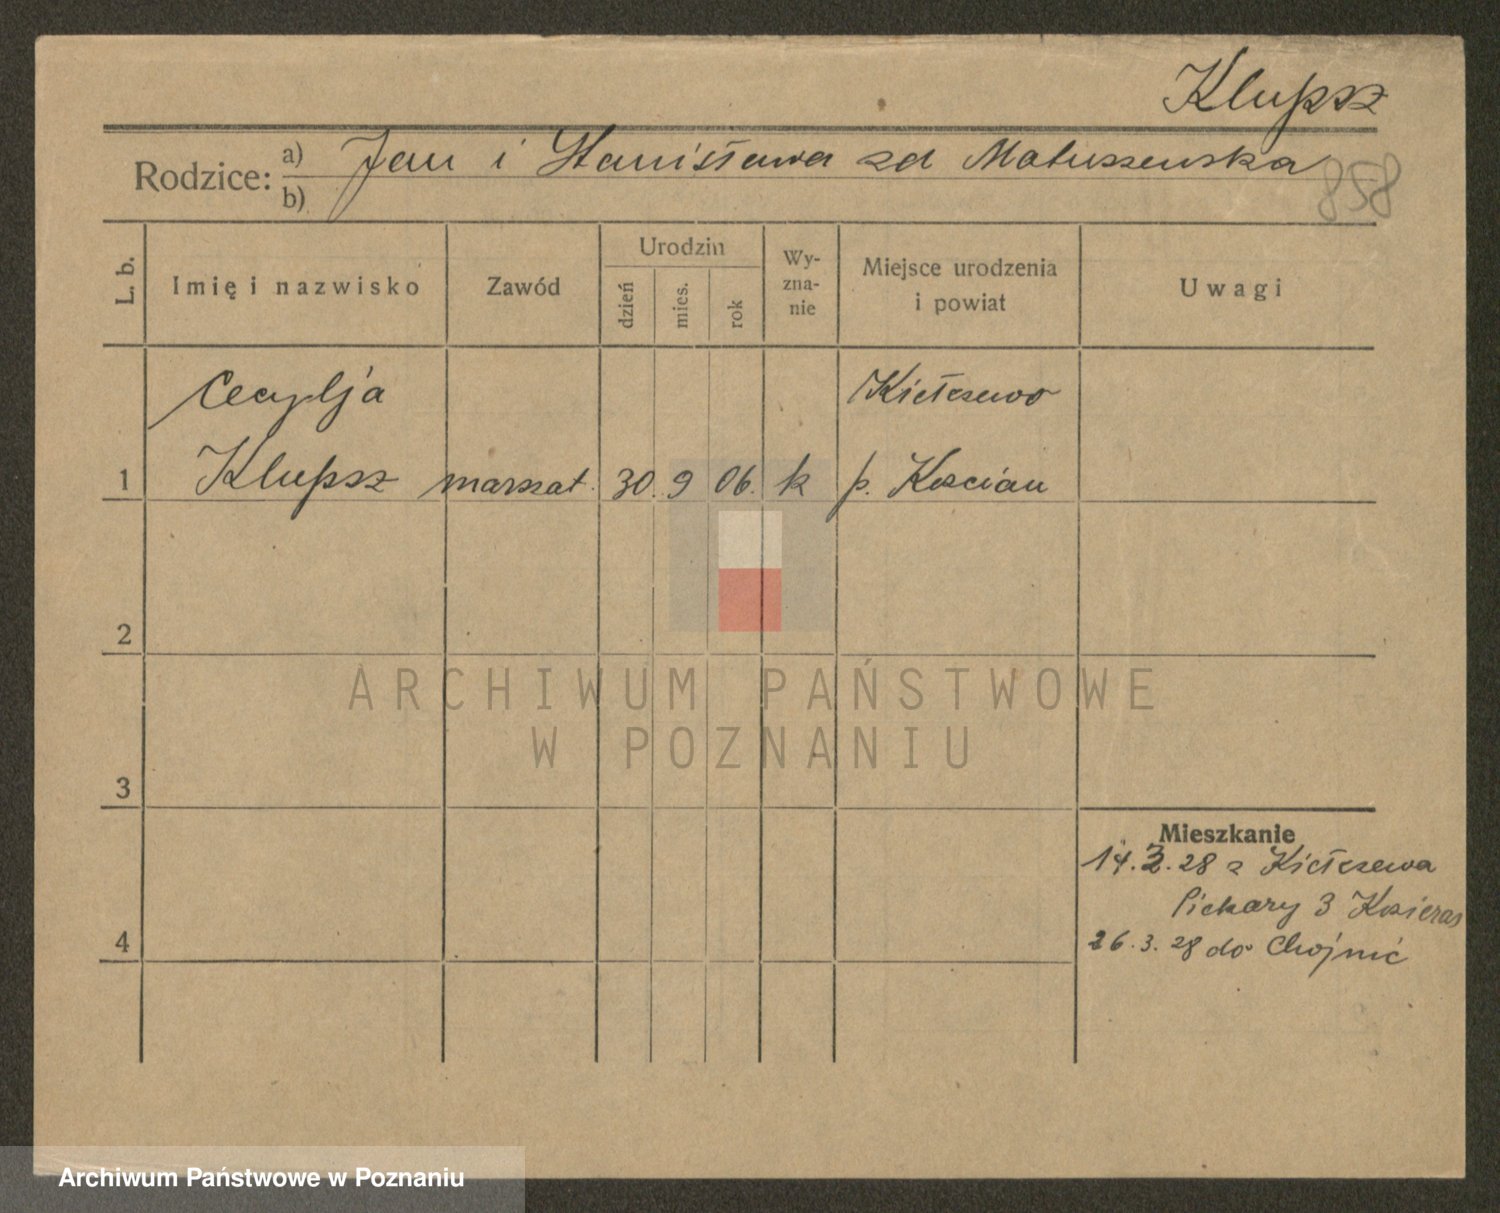 Klupsz
Rodzice: a) Jan i Stanisława zd Matuszewska
b)
858
L. b. Imię i nazwisko Zawód Urodzin dzień mies. rok Wy-zna-nie Miejsce urodzenia i powiat Uwagi
Cecylja Kiełczewo
1 Klupsz 30. 9 06. k p. Kościan
2
ARCHIWUM PAŃSTWOWE
W POZNANIU
3
Mieszkanie
14.3.28 z Kiełczewa
Piekary 3
4
26.3.28 do Chojnic
Archiwum Państwowe w Poznaniu